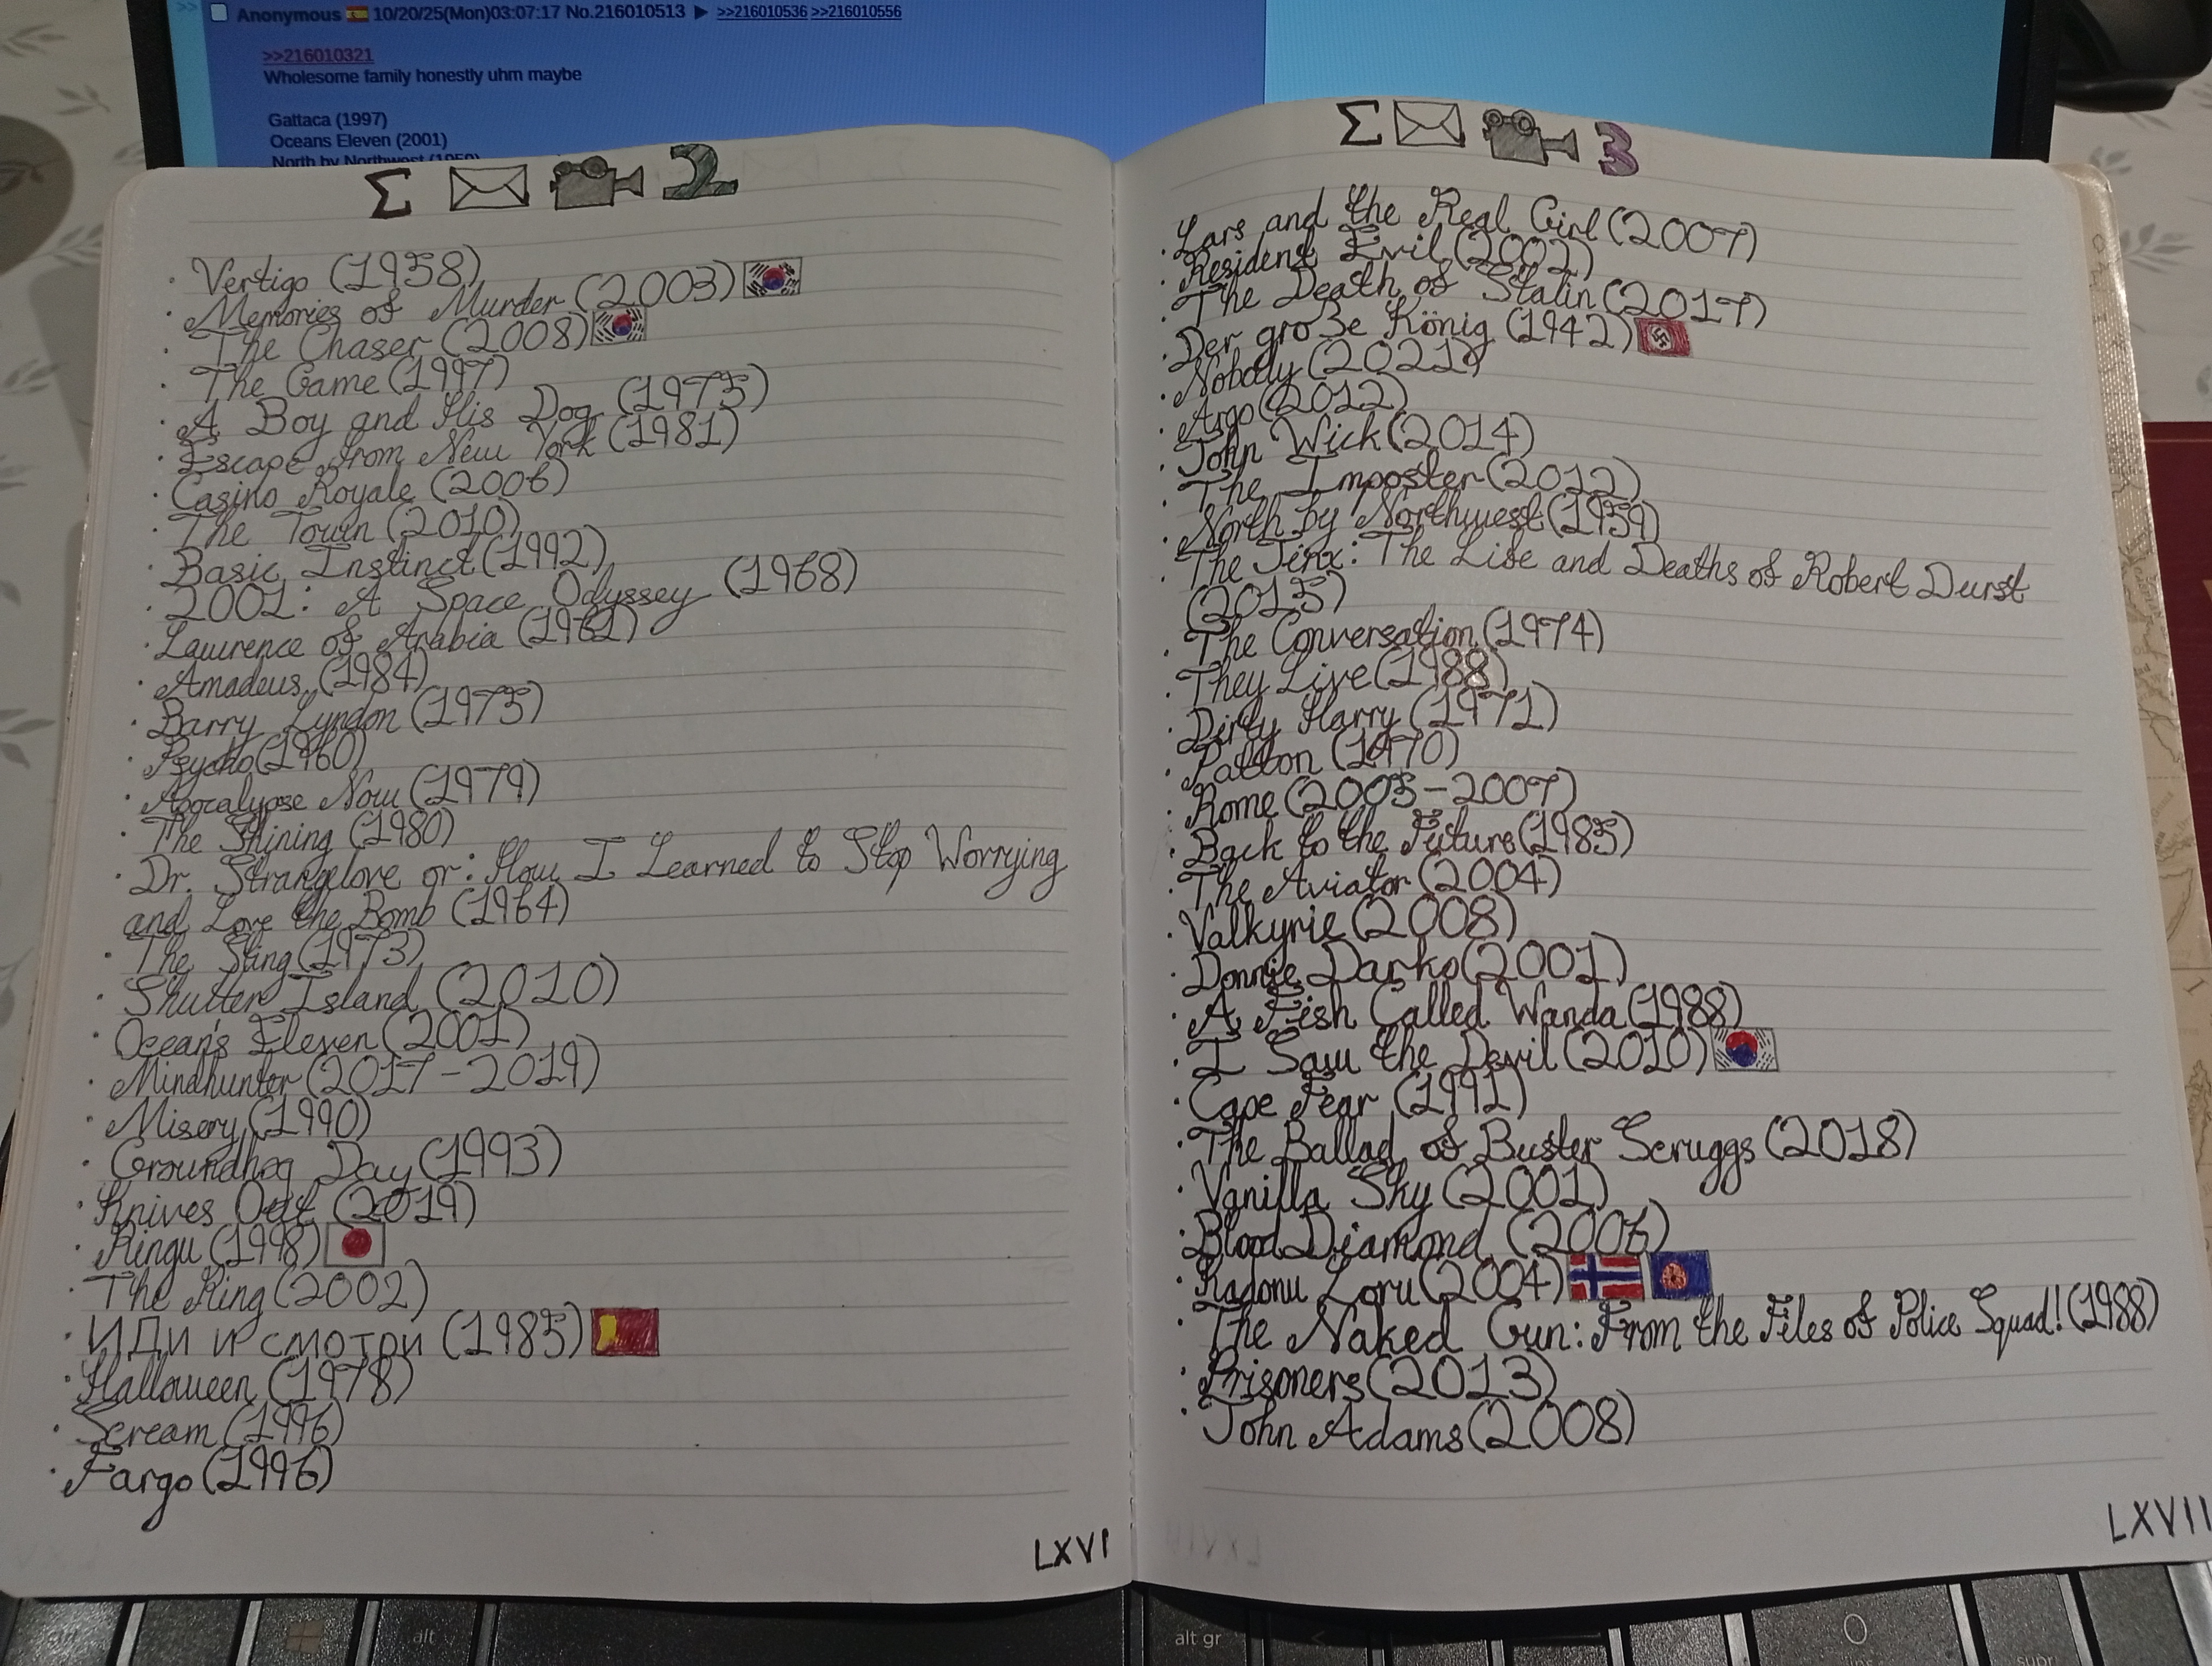 Anonymous 10/20/25(Mon)03:07:17 No.216010513 ▶ >>216010536 >>216010556
>>216010321
Wholesome family honestly uhm maybe
Gattaca (1997)
Oceans Eleven (2001)
North by Northwest (1959)
Σ 2
· Vertigo (1958)
· Memories of Murder (2003)
· The Chaser (2008)
· The Game (1997)
· A Boy and His Dog (1975)
· Escape from New York (1981)
· Casino Royale (2006)
· The Town (2010)
· Basic Instinct (1992)
· 2001: A Space Odyssey (1968)
· Lawrence of Arabia (1962)
· Amadeus (1984)
· Barry Lyndon (1975)
· Psycho (1960)
· Apocalypse Now (1979)
· The Shining (1980)
· Dr. Strangelove or: How I Learned to Stop Worrying
and Love the Bomb (1964)
· The Sting (1973)
· Shutter Island (2010)
· Ocean's Eleven (2001)
· Mindhunter (2017-2019)
· Misery (1990)
· Groundhog Day (1993)
· Knives Out (2019)
· Ringu (1998)
· The Ring (2002)
· Иди и смотри (1985)
· Halloween (1978)
· Scream (1996)
· Fargo (1996)
LXVI
Σ 3
· Lars and the Real Girl (2007)
· Resident Evil (2002)
· The Death of Stalin (2017)
· Der große König (1942)
· Nobody (2021)
· Argo (2012)
· John Wick (2014)
· The Imposter (2012)
· North by Northwest (1959)
· The Jinx: The Life and Deaths of Robert Durst
(2015)
· The Conversation (1974)
· They Live (1988)
· Dirty Harry (1971)
· Patton (1970)
· Rome (2005-2007)
· Back to the Future (1985)
· The Aviator (2004)
· Valkyrie (2008)
· Donnie Darko (2001)
· A Fish Called Wanda (1988)
· I Saw the Devil (2010)
· Cape Fear (1991)
· The Ballad of Buster Scruggs (2018)
· Vanilla Sky (2001)
· Blood Diamond (2006)
· Kadonu Loru (2004)
· The Naked Gun: From the Files of Police Squad! (1988)
· Prisoners (2013)
· John Adams (2008)
LXVII
alt
alt gr